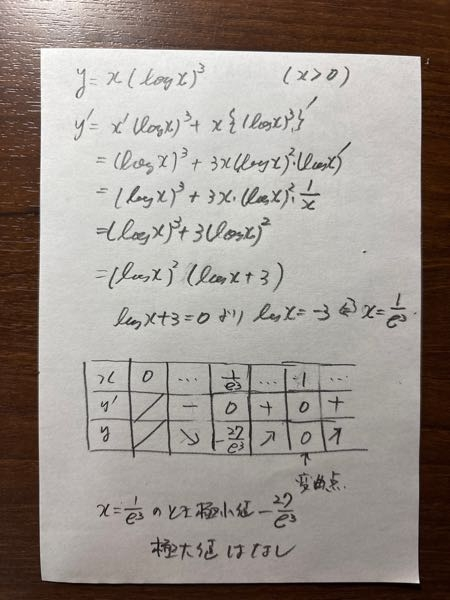 y = x(log x)³ (x>0)
y′ = x′(log x)³ + x{(log x)³}′
= (log x)³ + 3x(log x)²·(log x)′
= (log x)³ + 3x·(log x)²·1/x
= (log x)³ + 3(log x)²
= (log x)²(log x + 3)
log x + 3 = 0 より log x = -3 ⇔ x = 1/e³
x 0 … 1/e³ … 1 …
y′ ／ − 0 + 0 +
y ／ ↘ -27/e³ ↗ 0 ↗
↑
変曲点.
x = 1/e³ のとき極小値 -27/e³
極大値はなし